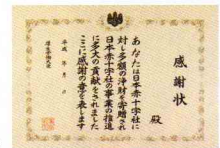 感謝状
殿
あなたは日本赤十字社に
対し多額の浄財を寄贈され
日本赤十字社の事業の推進
に多大の貢献をされました
ここに感謝の意を表します
平成 年 月 日
厚生労働大臣